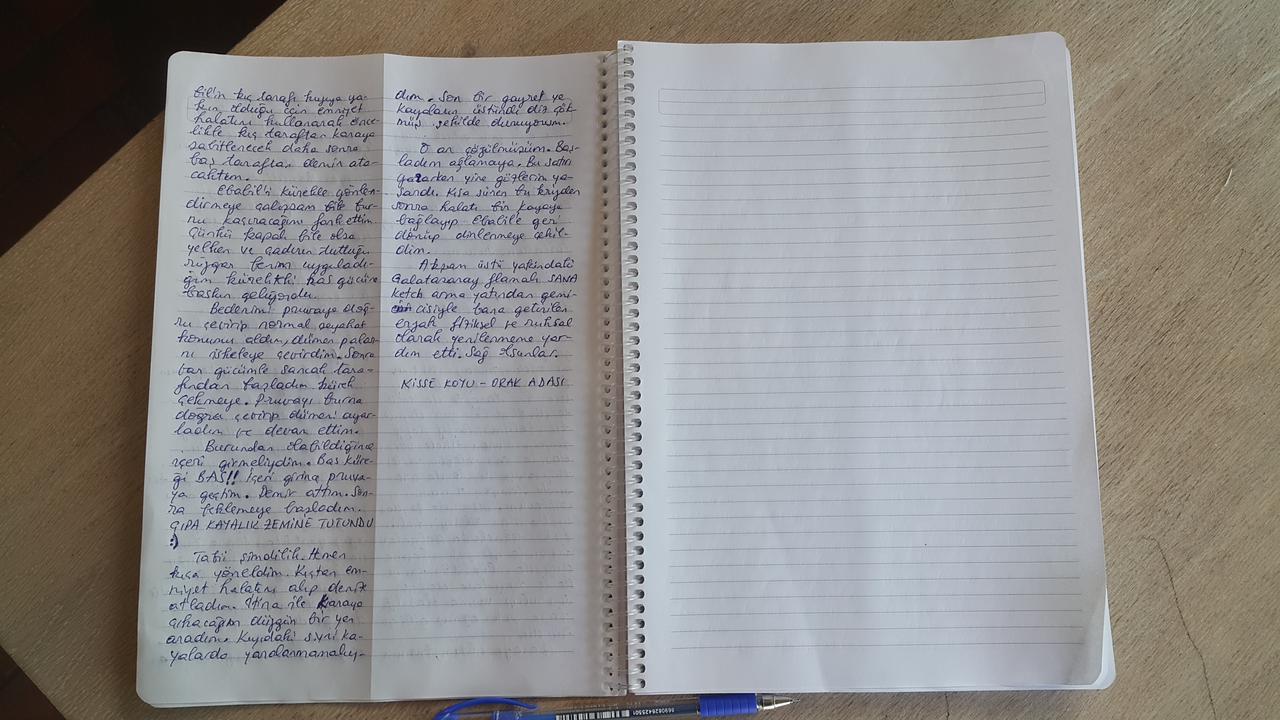 bil'in kıç tarafı kıyıya ya-
kın olduğu için emniyet
halatını kullanarak önce-
likle kıç taraftan karaya
sabitlenecek daha sonra
baş taraftan demir ata-
caktım.
Ebabil'i kürekle yönlen-
dirmeye çalışsam bile bur-
nu kaçıracağımı fark ettim
Çünkü kapalı bile olsa
yelken ve çadırın tuttuğu
rüzgar benim uyguladı-
ğım kürekteki kas gücüne
baskın geliyordu.
Bedenimi pruvaya doğ-
ru çevirip normal seyahat
konumu aldım, dümen palası-
nı iskeleye çevirdim. Sonra
var gücümle sancak tara-
fından başladım kürek
çekmeye. Pruvayı burna
doğru çevirip dümeni ayar-
ladım ve devam ettim.
Burundan olabildiğince
içeri girmeliydim. Bas küre-
ği BAS!! İçeri girince pruva-
ya geçtim. Demir attım. Son-
ra beklemeye başladım.
ÇIPA KAYALIK ZEMİNE TUTUNDU
:)
Tabii şimdilik. Hemen
kıça yöneldim. Kıçtan em-
niyet halatını alıp denize
atladım. İtina ile karaya
çıkacağım düzgün bir yer
aradım. Kıyıdaki sivri ka-
yalarda yaralanmamalıy-
dım. Son bir gayret ve
kayaların üstünde diz çök-
müş şekilde duruyorum.
O an çözülmüşüm. Baş-
ladım ağlamaya. Bu satırı
yazarken yine gözlerim ya-
şardı. Kısa süren bu krizden
sonra halatı bir kayaya
bağlayıp Ebabile geri
dönüp dinlenmeye çekil-
dim.
Akşam üstü yakındaki
Galatasaray flamalı SANA
ketch arma yatından gemi-
cisiyle bana getirilen
erzak fiziksel ve ruhsal
olarak yenilenmeme yar-
dım etti. Sağ olsunlar.
KİSSE KOYU - ORAK ADASI